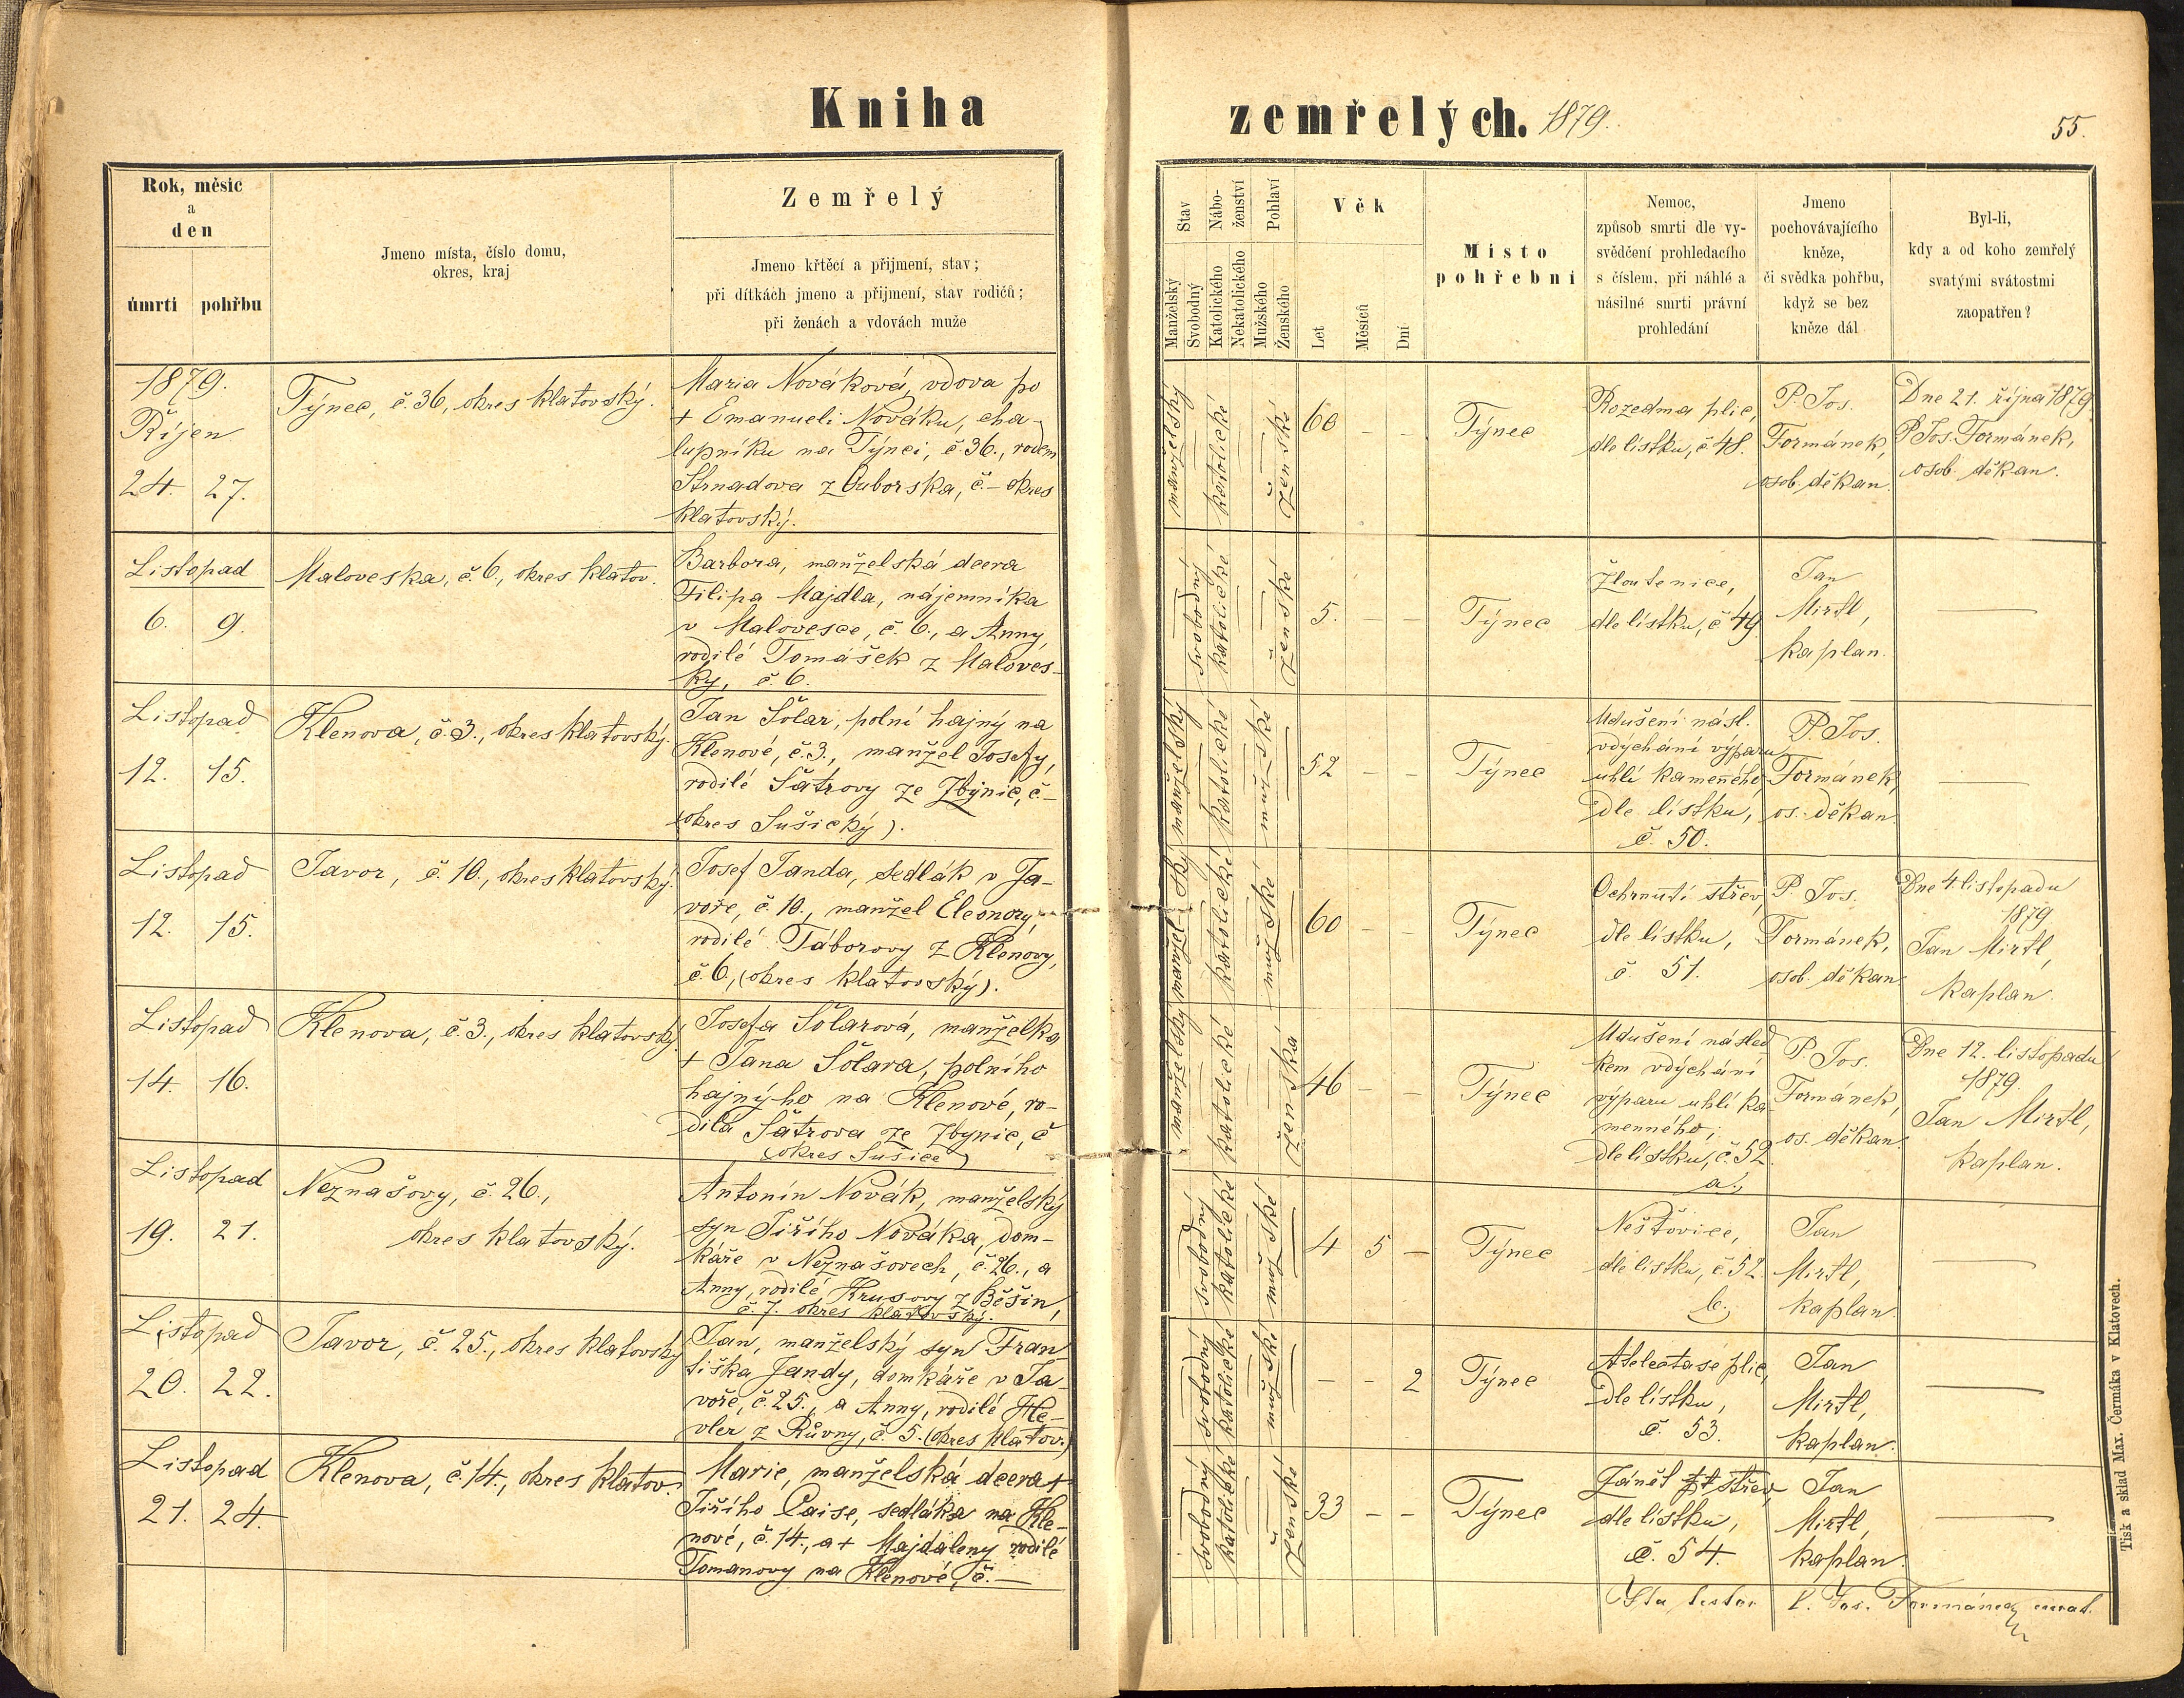 Kniha zemřelých. 1879.
55.
Rok, měsic
a
den
úmrti pohřbu
Jmeno místa, číslo domu,
okres, kraj
Zemřelý
Jmeno křtěcí a přijmení, stav;
při dítkách jmeno a přijmení, stav rodičů;
při ženách a vdovách muže
Stav
Manželský
Svobodný
Nábo-
ženství
Katolického
Nekatolického
Pohlaví
Mužského
Ženského
Věk
Let
Měsíců
Dní
Misto
pohřebni
Nemoc,
způsob smrti dle vy-
svědčení prohledacího
s číslem, při náhlé a
násilné smrti právní
prohledání
Jmeno
pochovávajícího
kněze,
či svědka pohřbu,
když se bez
kněze dál
Byl-li,
kdy a od koho zemřelý
svatými svátostmi
zaopatřen?
1879.
Říjen
24. 27.
Týnec, č. 36, okres klatovský.
Maria Nováková, vdova po
+ Emanueli Nováku, cha-
lupníku na Týnci, č 36., rodem
Strnadova z Ouborska, č.– okres
klatovský.
manželský
katolické
ženské
60 – –
Týnec
Rozedma plic,
dle lístku, č 48.
P. Jos.
Formánek,
osob. děkan.
Dne 21. října 1879
P. Jos. Formánek,
osob. děkan.
Listopad
6. 9.
Maloveska, č. 6., okres klatov.
Barbora, manželská dcera
Filipa Majdla, nájemníka
v Malovesce, č. 6., a Anny,
rodilé Tomášek z Maloves-
ky, č. 6.
svobodný
katolické
ženské
5. – –
Týnec
Žloutenice,
dle lístku, č 49
Jan
Mirtl,
kaplan.
—
Listopad
12. 15.
Klenova, č. 3., okres klatovský.
Jan Šolar, polní hajný na
Klenové, č. 3., manžel Josefy,
rodilé Šátrovy ze Zbynic, č –
(okres Sušický).
manželský
katolické
mužské
52 – –
Týnec
Udušení násl.
vdýchání výparu
uhlí kamenného
dle lístku,
č. 50.
P. Jos.
Formánek,
os. děkan.
—
Listopad
12. 15.
Javor, č. 10., okres klatovský.
Josef Janda, sedlák v Ja-
voře, č. 10., manžel Eleonory,
rodilé Táborovy z Klenovy,
č. 6., (okres klatovský).
manželský
katolické
mužské
60 – –
Týnec
Ochrnutí střev,
dle lístku,
č 51.
P. Jos.
Formánek,
osob. děkan
Dne 4 listopadu
1879
Jan Mirtl,
kaplan.
Listopad
14. 16.
Klenova, č. 3., okres klatovský.
Josefa Šolarová, manželka
+ Jana Šolara, polního
hajnýho na Klenové, ro-
dilá Šátrova ze Zbynic, č
(okres Sušice)
manželský
katolické
ženská
46 – –
Týnec
Udušení násled
kem vdýchání
výparu uhlí ka
menného,
dle lístku, č. 52
a.,
P. Jos.
Formánek,
os. děkan.
Dne 12. listopadu
1879.
Jan Mirtl,
kaplan.
Listopad
19. 21.
Neznašovy, č. 26.,
okres klatovský.
Antonín Novák, manželský
syn Jiřího Nováka, dom-
káře v Neznašovech, č. 26., a
Anny, rodilé Krusovy z Běšin,
č. 7. okres klatovský.
svobodný
katolické
mužské
4 5 –
Týnec
Neštovice,
dle lístku, č. 52
b.,
Jan
Mirtl,
kaplan.
—
Listopad
20. 22.
Javor, č. 25., okres klatovský
Jan, manželský syn Fran
tiška Jandy, domkáře v Ja-
voře, č. 25., a Anny, rodilé He-
vler z Růvny, č. 5. (okres klatov.)
svobodný
katolické
mužské
– – 2
Týnec
Atelectase plic,
dle lístku,
č. 53.
Jan
Mirtl,
kaplan.
—
Listopad
21. 24.
Klenova, č. 14., okres klatov.
Marie, manželská dcera +
Jiřího Caise, sedláka na Kle-
nové, č. 14., a + Majdaleny rodilé
Tomanovy na Klenové, č. –
svobodný
katolické
ženské
33 – –
Týnec
Zánět střev,
dle lístku,
č. 54.
Jan
Mirtl,
kaplan.
—
Ista testor P. Jos. Formánek
Tisk a sklad Max. Čermáka v Klatovech.